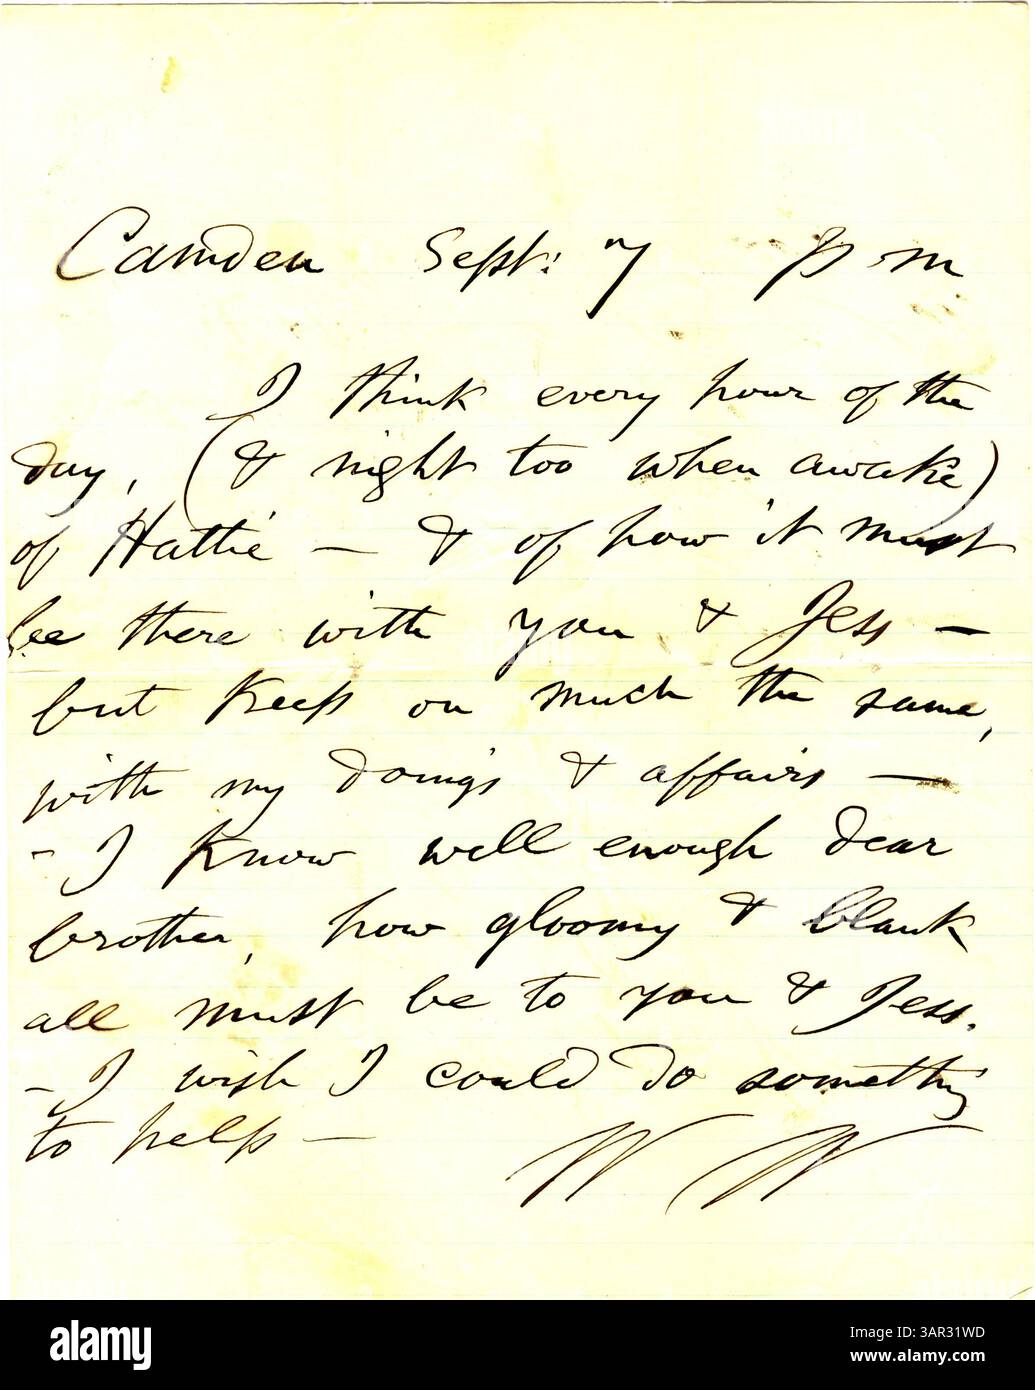 Camden Sept: 7 p m
I think every hour of the
day, (& night too when awake)
of Hattie — & of how it must
be there with you & Jess —
but keep on much the same,
with my doings & affairs —
- I know well enough dear
brother, how gloomy & blank
all must be to you & Jess.
- I wish I could do something
to help —
W W
alamy
Image ID: 3AR31WD
www.alamy.com